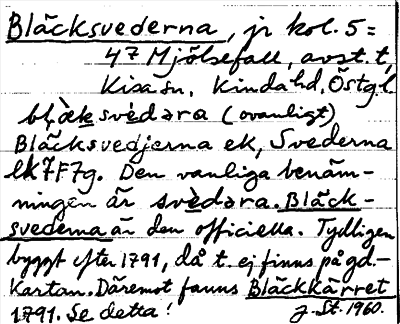 Bläcksvederna, jr kol. 5 =
47 Mjölsefall, avst. t,
Kisa sn, Kinda hd, Östgl
bḷäksvèdәra (ovanligt)
Bläcksvedjerna ek, Svederna
ek 7F7g. Den vanliga benäm-
ningen är svèdәra. Bläck-
svederna är den officiella. Tydligen
byggt efter 1791, då t. ej finns på gd.-
kartan. Däremot fanns Bläckkärret
1791. Se detta! J. St. 1960.